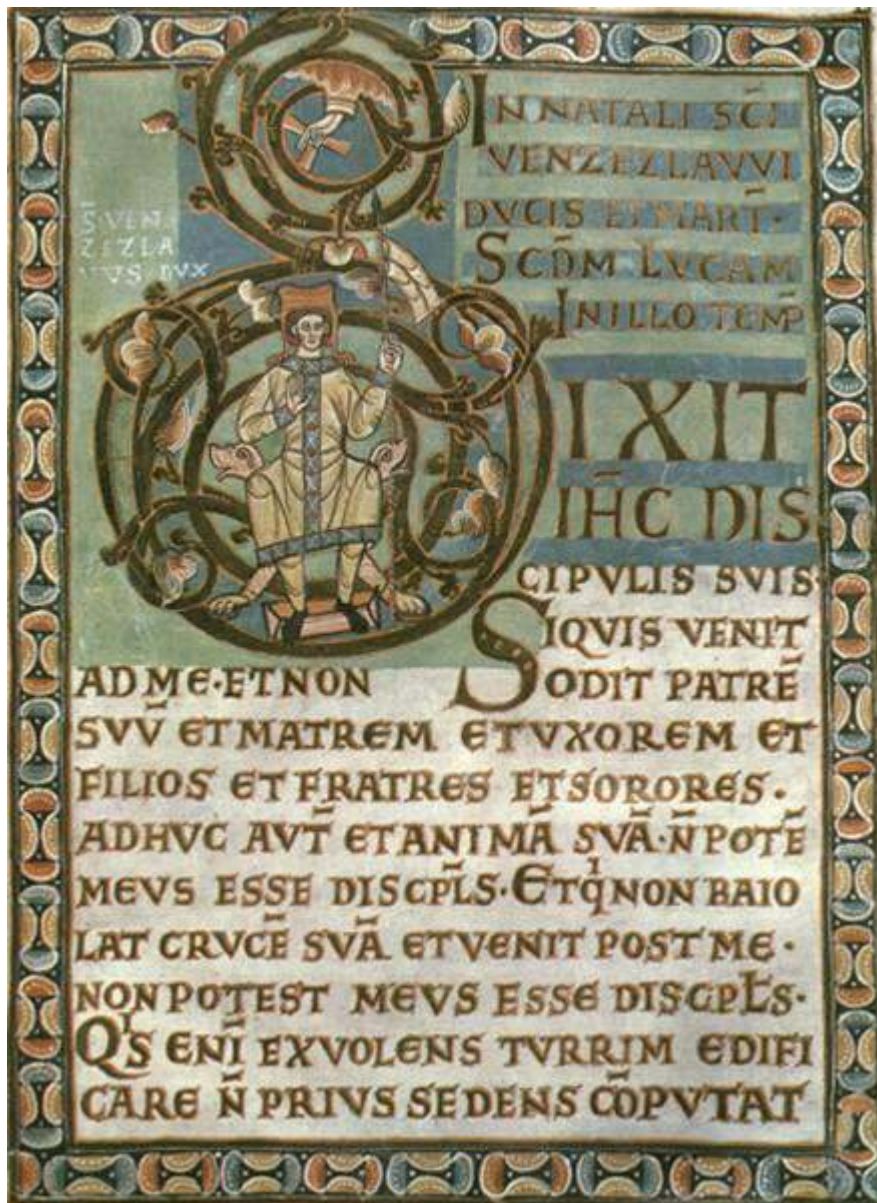 S̄·VEN
ZEZLA
VVS DVX
IN NATALI SC̄I
VENZEZLAVVI
DVCIS ET MART̄·
SCD̄M LVCAM
IN ILLO TEMP̄
DIXIT
IH̄C DIS
CIPVLIS SVIS·
SIQVIS VENIT
AD ME·ET NON
ODIT PATRĒ
SVV̄ ET MATREM ET VXOREM ET
FILIOS ET FRATRES ET SORORES·
ADHVC AVT̄ ET ANIMĀ SVĀ·N̄ POTĒ
MEVS ESSE DISCPL̄S·ET qͥ NON BAIO
LAT CRVCĒ SVĀ ET VENIT POST ME·
NON POTEST MEVS ESSE DISCIPL̄S·
QͥS ENĪ EX VOLENS TVRRIM EDIFI
CARE N̄ PRIVS SEDENS CŌPVTAT